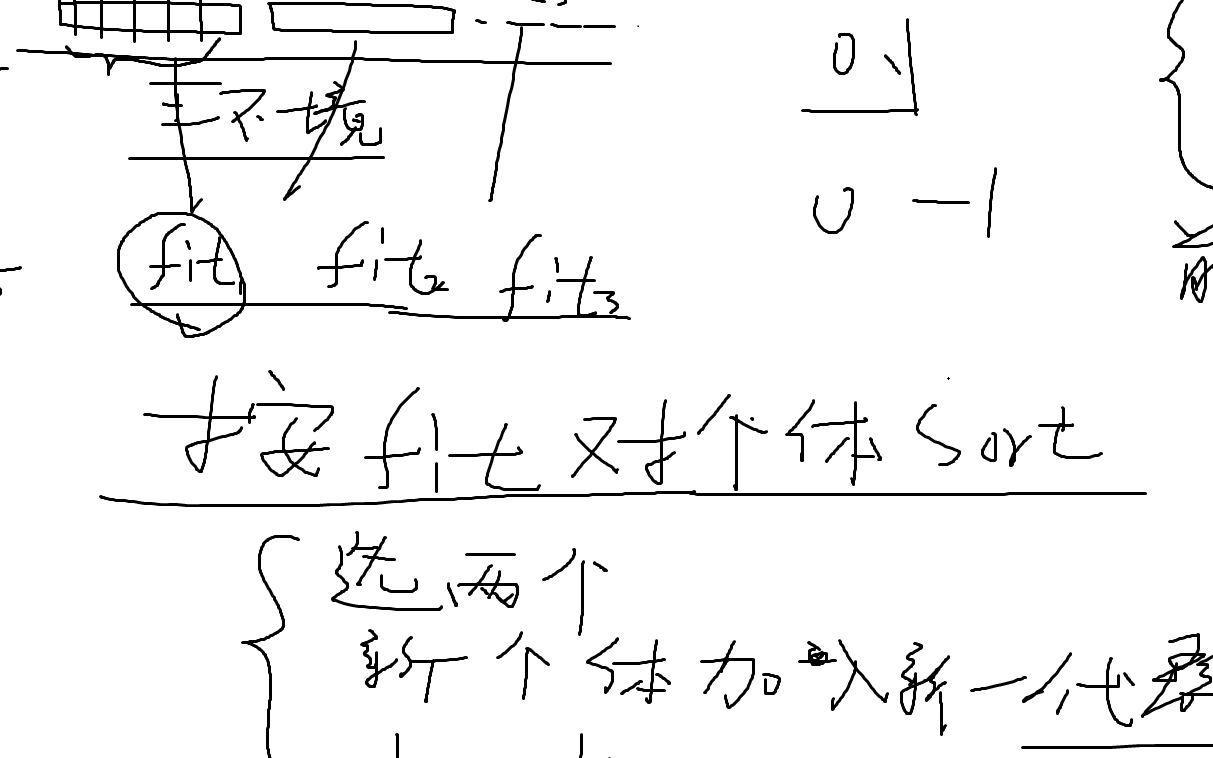 0.1
环境
0—1
fit1 fit2 fit3
按fit对个体Sort
选两个
新个体加入新一代